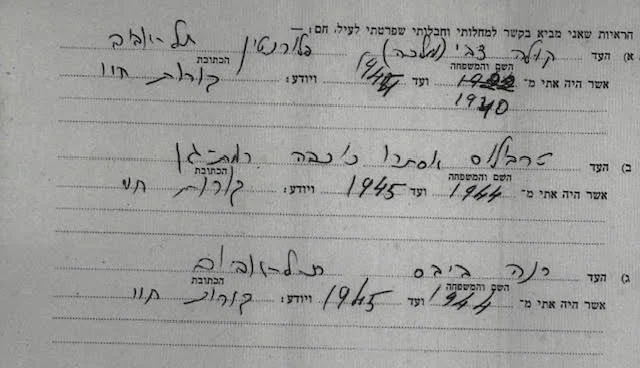 הראיות שאני מביא בקשר למחלותי וחבלותי שפרטתי לעיל, הם: —
א) העד קולה צבי (מלכה) פלורנטין תל-אביב
השם והמשפחה הכתובת
אשר היה אתי מ־ 1940 ועד 1944 ויודע: קורות חיי
ב) העד אסתרו רמת-גן
השם והמשפחה הכתובת
אשר היה אתי מ־ 1944 ועד 1945 ויודע: קורות חיי
ג) העד רנה ביבס תל-אביב
השם והמשפחה הכתובת
אשר היה אתי מ־ 1944 ועד 1945 ויודע: קורות חיי